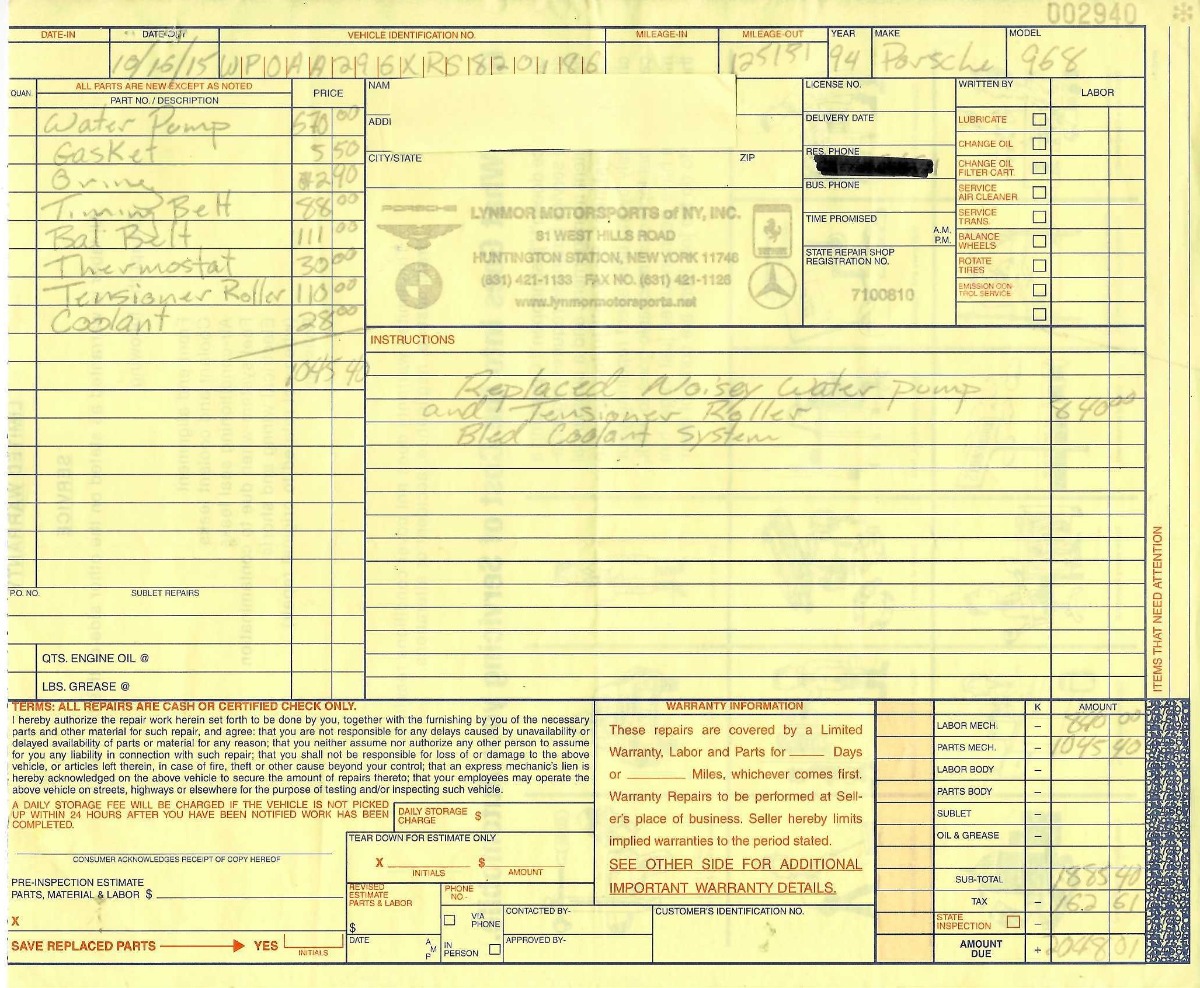 002940
DATE-IN DATE-OUT VEHICLE IDENTIFICATION NO. MILEAGE-IN MILEAGE-OUT YEAR MAKE MODEL
10/16/15 WP0AA296XRS820186 125151 94 Porsche 968
QUAN. ALL PARTS ARE NEW EXCEPT AS NOTED
PART NO. / DESCRIPTION PRICE
Water Pump 670 00
Gasket 5 50
2 90
Timing Belt 88 00
Bal Belt 111 00
Thermostat 30 00
Tensioner Roller 110 00
Coolant 28 00
1045 40
P.O. NO. SUBLET REPAIRS
QTS. ENGINE OIL @
LBS. GREASE @
NAM
ADD
CITY/STATE ZIP
PORSCHE
LYNMOR MOTORSPORTS of NY, INC.
81 WEST HILLS ROAD
HUNTINGTON STATION, NEW YORK 11746
(631) 421-1133 FAX NO. (631) 421-1126
www.lynmormotorsports.net
LICENSE NO.
DELIVERY DATE
RES. PHONE
BUS. PHONE
TIME PROMISED
A.M.
P.M.
STATE REPAIR SHOP
REGISTRATION NO.
7100810
WRITTEN BY LABOR
LUBRICATE
CHANGE OIL
CHANGE OIL
FILTER CART.
SERVICE
AIR CLEANER
SERVICE
TRANS.
BALANCE
WHEELS
ROTATE
TIRES
EMISSION CON
TROL SERVICE
INSTRUCTIONS
Replaced Noisey Water pump
and Tensioner Roller 840 00
Bled Coolant System
ITEMS THAT NEED ATTENTION
TERMS: ALL REPAIRS ARE CASH OR CERTIFIED CHECK ONLY.
I hereby authorize the repair work herein set forth to be done by you, together with the furnishing by you of the necessary
parts and other material for such repair, and agree: that you are not responsible for any delays caused by unavailability or
delayed availability of parts or material for any reason; that you neither assume nor authorize any other person to assume
for you any liability in connection with such repair; that you shall not be responsible for loss of or damage to the above
vehicle, or articles left therein, in case of fire, theft or other cause beyond your control; that an express mechanic's lien is
hereby acknowledged on the above vehicle to secure the amount of repairs thereto; that your employees may operate the
above vehicle on streets, highways or elsewhere for the purpose of testing and/or inspecting such vehicle.
A DAILY STORAGE FEE WILL BE CHARGED IF THE VEHICLE IS NOT PICKED
UP WITHIN 24 HOURS AFTER YOU HAVE BEEN NOTIFIED WORK HAS BEEN
COMPLETED.
DAILY STORAGE
CHARGE $
CONSUMER ACKNOWLEDGES RECEIPT OF COPY HEREOF
PRE-INSPECTION ESTIMATE
PARTS, MATERIAL & LABOR $
X
SAVE REPLACED PARTS YES
INITIALS
TEAR DOWN FOR ESTIMATE ONLY
X $
INITIALS AMOUNT
REVISED
ESTIMATE
PARTS & LABOR
$
PHONE
NO.-
DATE A M P
VIA
PHONE
IN
PERSON
CONTACTED BY-
APPROVED BY-
WARRANTY INFORMATION
These repairs are covered by a Limited
Warranty, Labor and Parts for Days
or Miles, whichever comes first.
Warranty Repairs to be performed at Sell-
er's place of business. Seller hereby limits
implied warranties to the period stated.
SEE OTHER SIDE FOR ADDITIONAL
IMPORTANT WARRANTY DETAILS.
CUSTOMER'S IDENTIFICATION NO.
K AMOUNT
LABOR MECH. – 840 00
PARTS MECH. – 1045 40
LABOR BODY –
PARTS BODY –
SUBLET –
OIL & GREASE –
SUB-TOTAL 1885 40
TAX – 162 61
STATE
INSPECTION –
AMOUNT
DUE + 2048 01